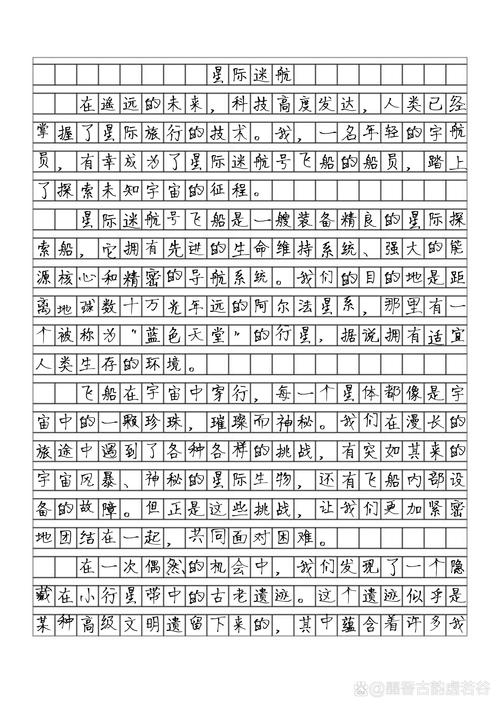 星际迷航
在遥远的未来，科技高度发达，人类已经
掌握了星际旅行的技术。我，一名年轻的宇航
员，有幸成为了星际迷航号飞船的船员，踏上
了探索未知宇宙的征程。
星际迷航号飞船是一艘装备精良的星际探
索船，它拥有先进的生命维持系统、强大的能
源核心和精密的导航系统。我们的目的地是距
离地球数十万光年远的阿尔法星系，那里有一
个被称为“蓝色天堂”的行星，据说拥有适宜
人类生存的环境。
飞船在宇宙中穿行，每一个星体都像是宇
宙中的一颗珍珠，璀璨而神秘。我们在漫长的
旅途中遇到了各种各样的挑战，有突如其来的
宇宙风暴、神秘的星际生物，还有飞船内部设
备的故障。但正是这些挑战，让我们更加紧密
地团结在一起，共同面对困难。
在一次偶然的机会中，我们发现了一个隐
藏在小行星带中的古老遗迹。这个遗迹似乎是
某种高级文明遗留下来的，其中蕴含着许多我